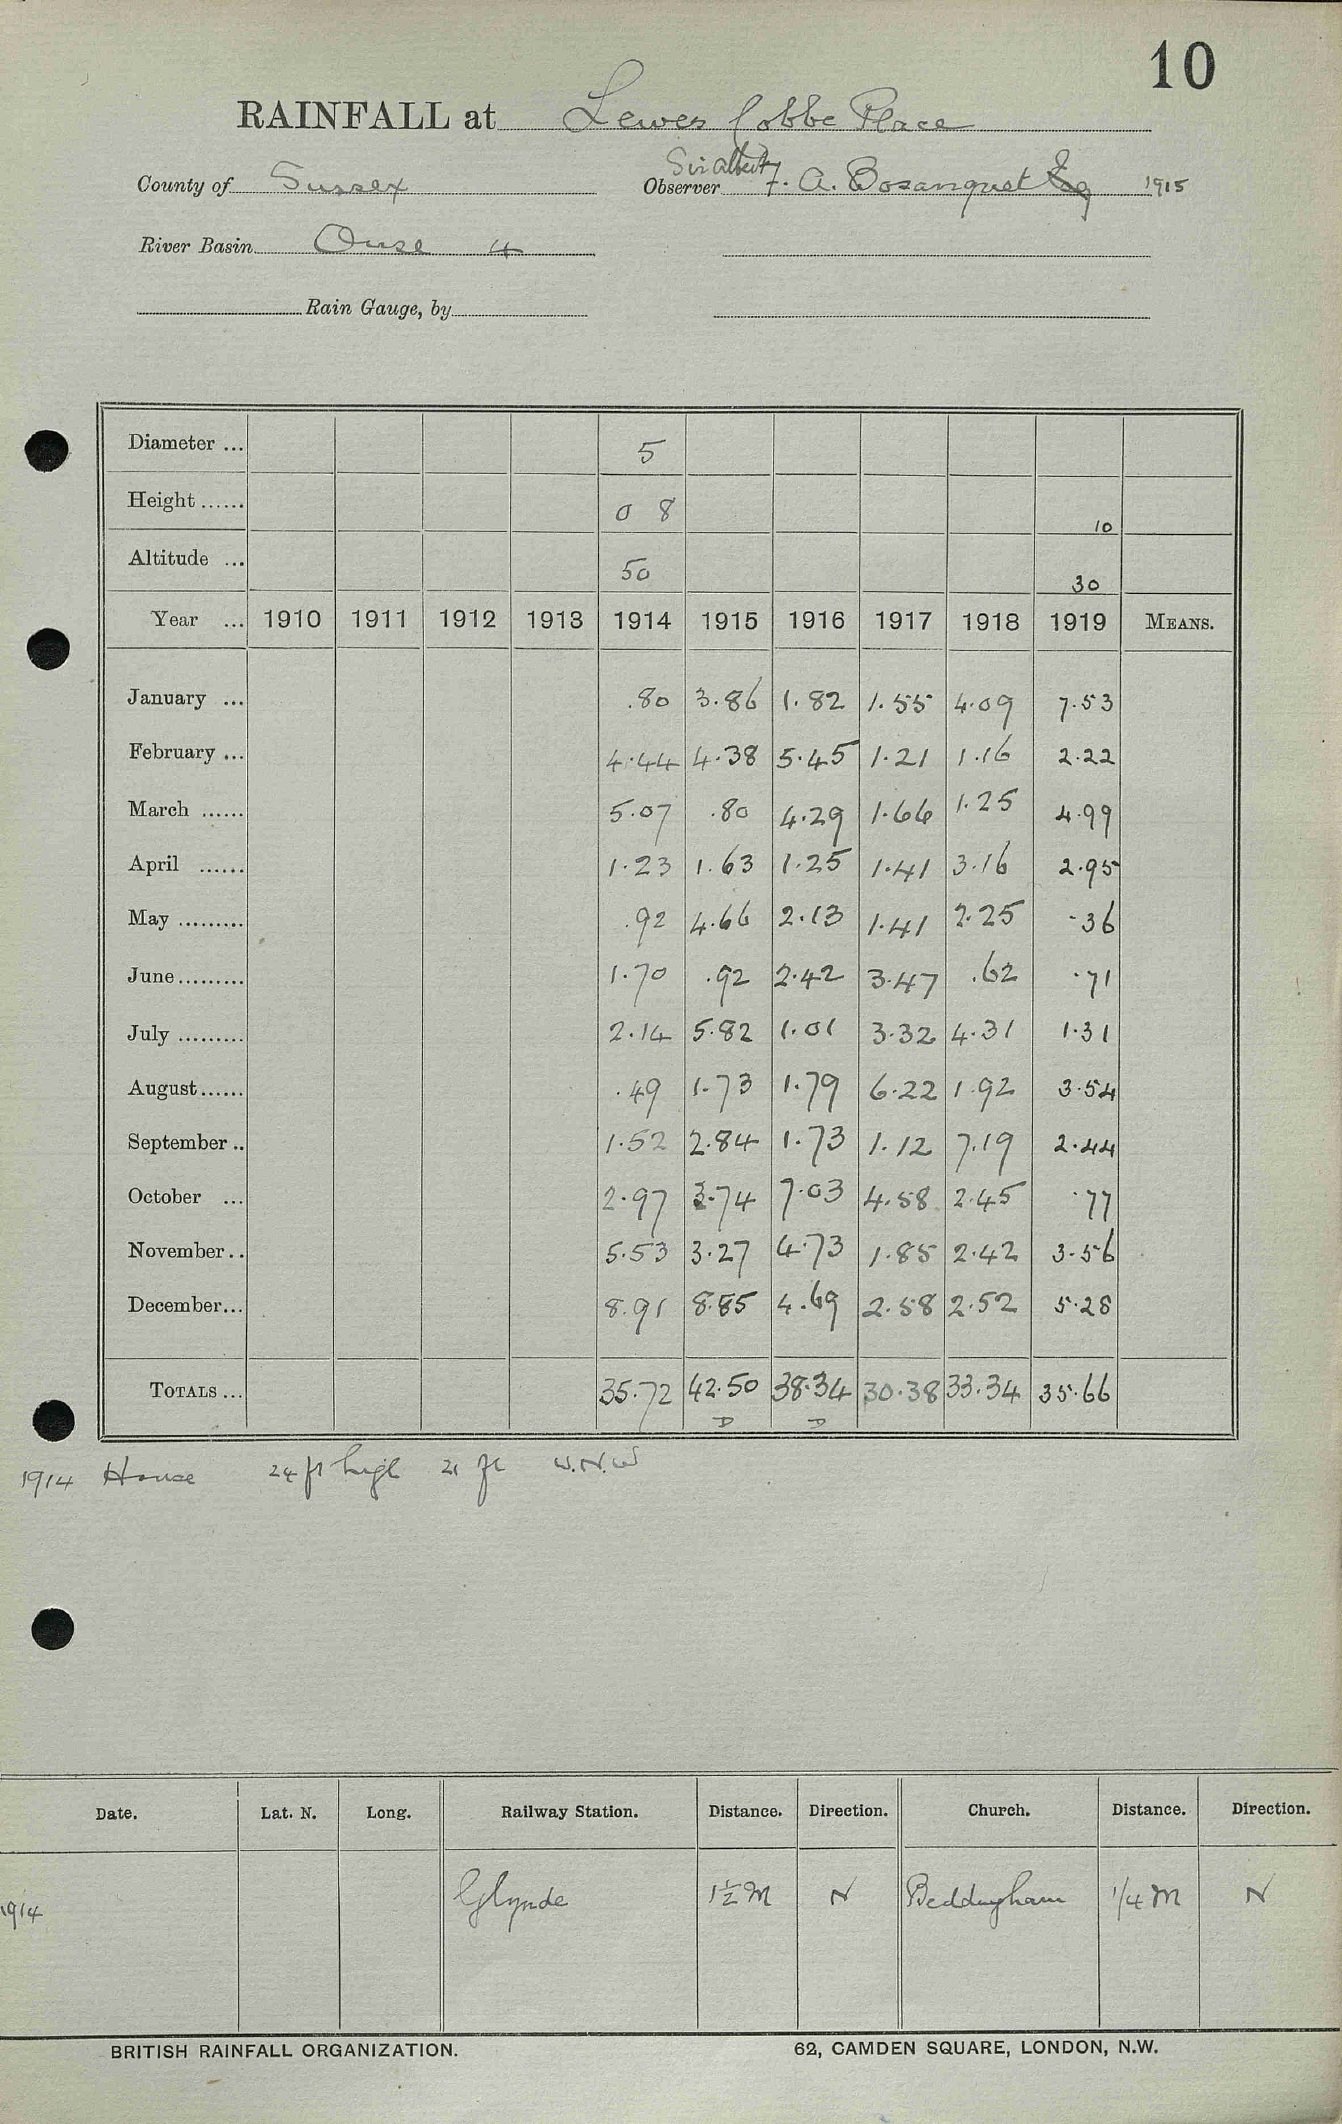 10
RAINFALL at Lewes Cobbe Place
Sir Albert
County of Sussex Observer F. A. Bosanquet Esq 1915
River Basin Ouse 4
Rain Gauge, by
Diameter ... 5
Height ...... 0 8 10
Altitude ... 50 30
Year ... 1910 1911 1912 1913 1914 1915 1916 1917 1918 1919 MEANS.
January ... .80 3.86 1.82 1.55 4.09 7.53
February ... 4.44 4.38 5.45 1.21 1.16 2.22
March ...... 5.07 .80 4.29 1.66 1.25 4.99
April ...... 1.23 1.63 1.25 1.41 3.16 2.95
May ......... .92 4.66 2.13 1.41 2.25 .36
June......... 1.70 .92 2.42 3.47 .62 .71
July ......... 2.14 5.82 1.01 3.32 4.31 1.31
August...... .49 1.73 1.79 6.22 1.92 3.54
September .. 1.52 2.84 1.73 1.12 7.19 2.44
October ... 2.97 3.74 7.03 4.58 2.45 .77
November .. 5.53 3.27 4.73 1.85 2.42 3.56
December... 8.91 8.85 4.69 2.58 2.52 5.28
TOTALS ... 35.72 42.50 38.34 30.38 33.34 35.66
D D
1914 House 24 ft high 21 ft W.N.W
Date. Lat. N. Long. Railway Station. Distance. Direction. Church. Distance. Direction.
1914 Glynde 1½ M N Beddingham 1/4 M N
BRITISH RAINFALL ORGANIZATION. 62, CAMDEN SQUARE, LONDON, N.W.